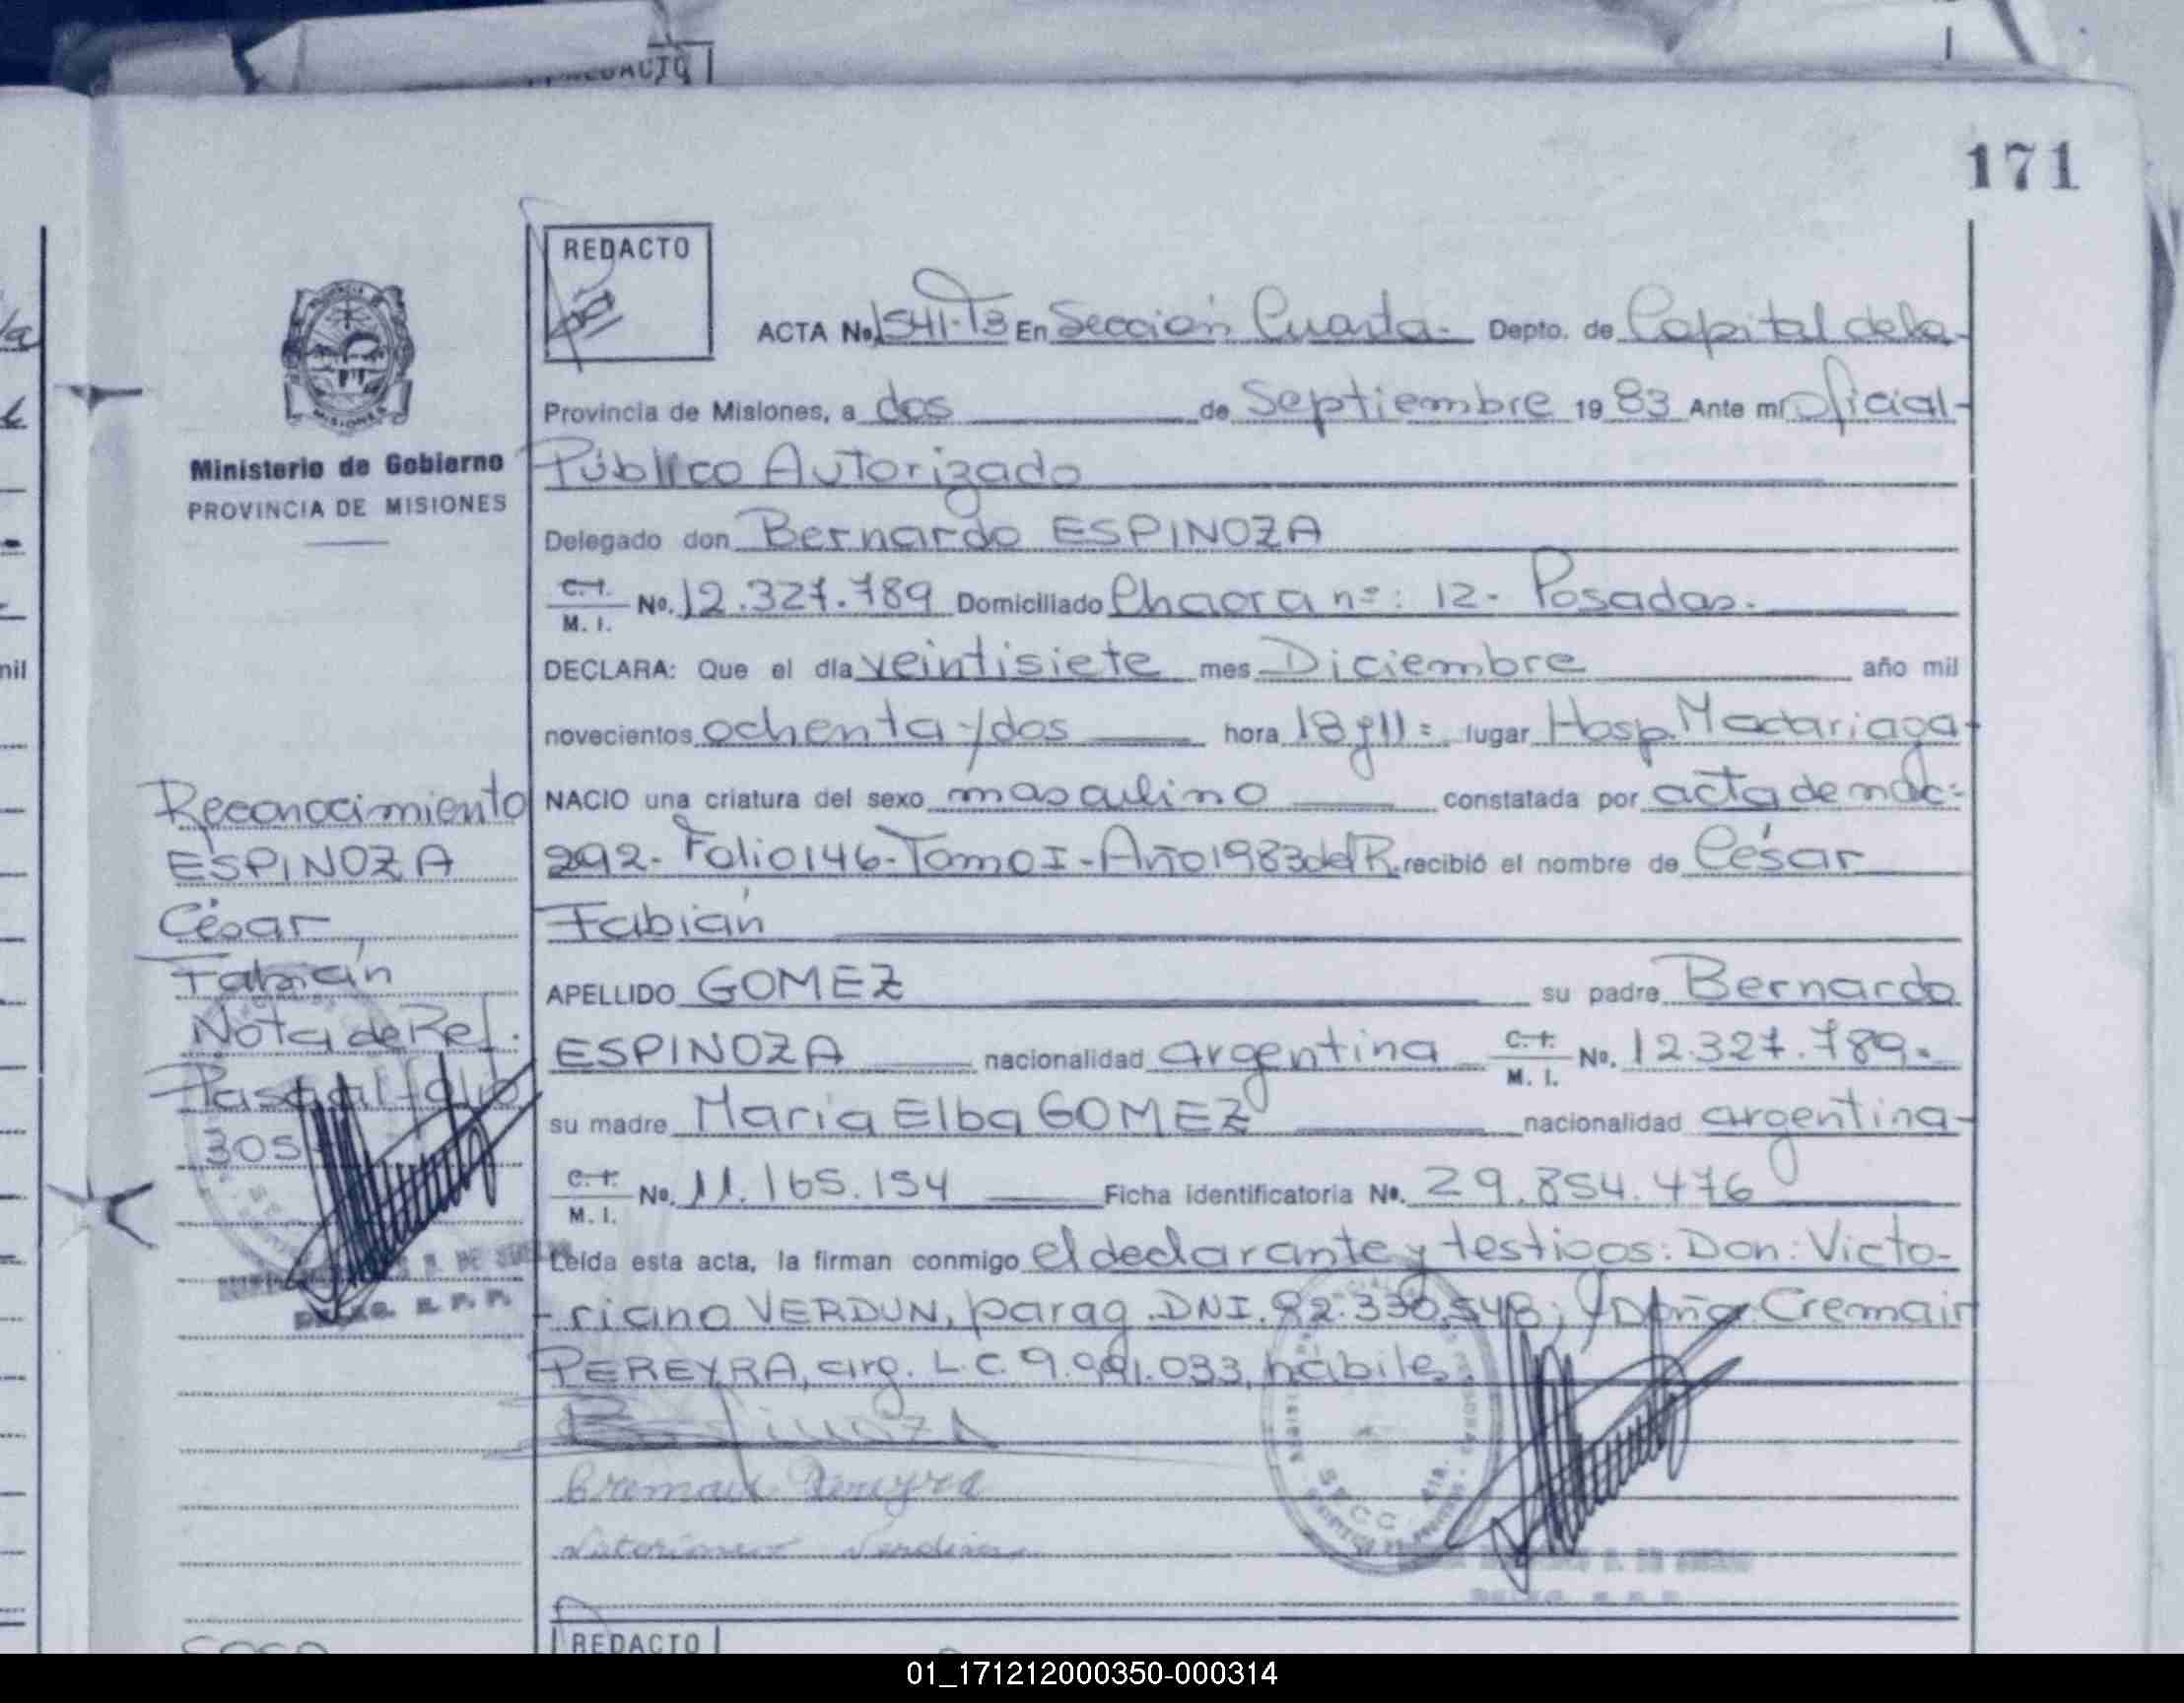 171
REDACTO
ACTA No. 1541-T3 En Sección Cuarta- Depto. de Capital de la-
Provincia de Misiones, a dos de Septiembre 19 83 Ante mí Oficial-
Público Autorizado
Ministerio de Gobierno
PROVINCIA DE MISIONES
Delegado don Bernardo ESPINOZA
C.I. M. I. No. 12.327.789 Domiciliado Chacra nº: 12- Posadas.
DECLARA: Que el día veintisiete mes Diciembre año mil
novecientos ochenta y dos hora 18 y 11= lugar Hosp. Madariaga-
NACIO una criatura del sexo masculino constatada por acta de nac:
292- Folio 146- Tomo I- Año 1983 del R. recibió el nombre de César
Fabián
APELLIDO GOMEZ su padre Bernardo
ESPINOZA nacionalidad argentina C.I. M. I. No. 12.327.789.
su madre María Elba GOMEZ nacionalidad argentina-
C.I. M. I. No. 11.165.154 Ficha identificatoria No. 29.854.476
Leída esta acta, la firman conmigo el declarante y testigos: Don: Victo-
-riano VERDUN, parag. DNI. 92.330.548; y Doña: Cremair
PEREYRA, arg. L.C. 9.991.033, hábiles
Reconocimiento
ESPINOZA
César,
Fabián
Nota de Ref.
Pasa al folio
305
Pereyra
SECC. 4ta.
REDACTO
01_171212000350-000314